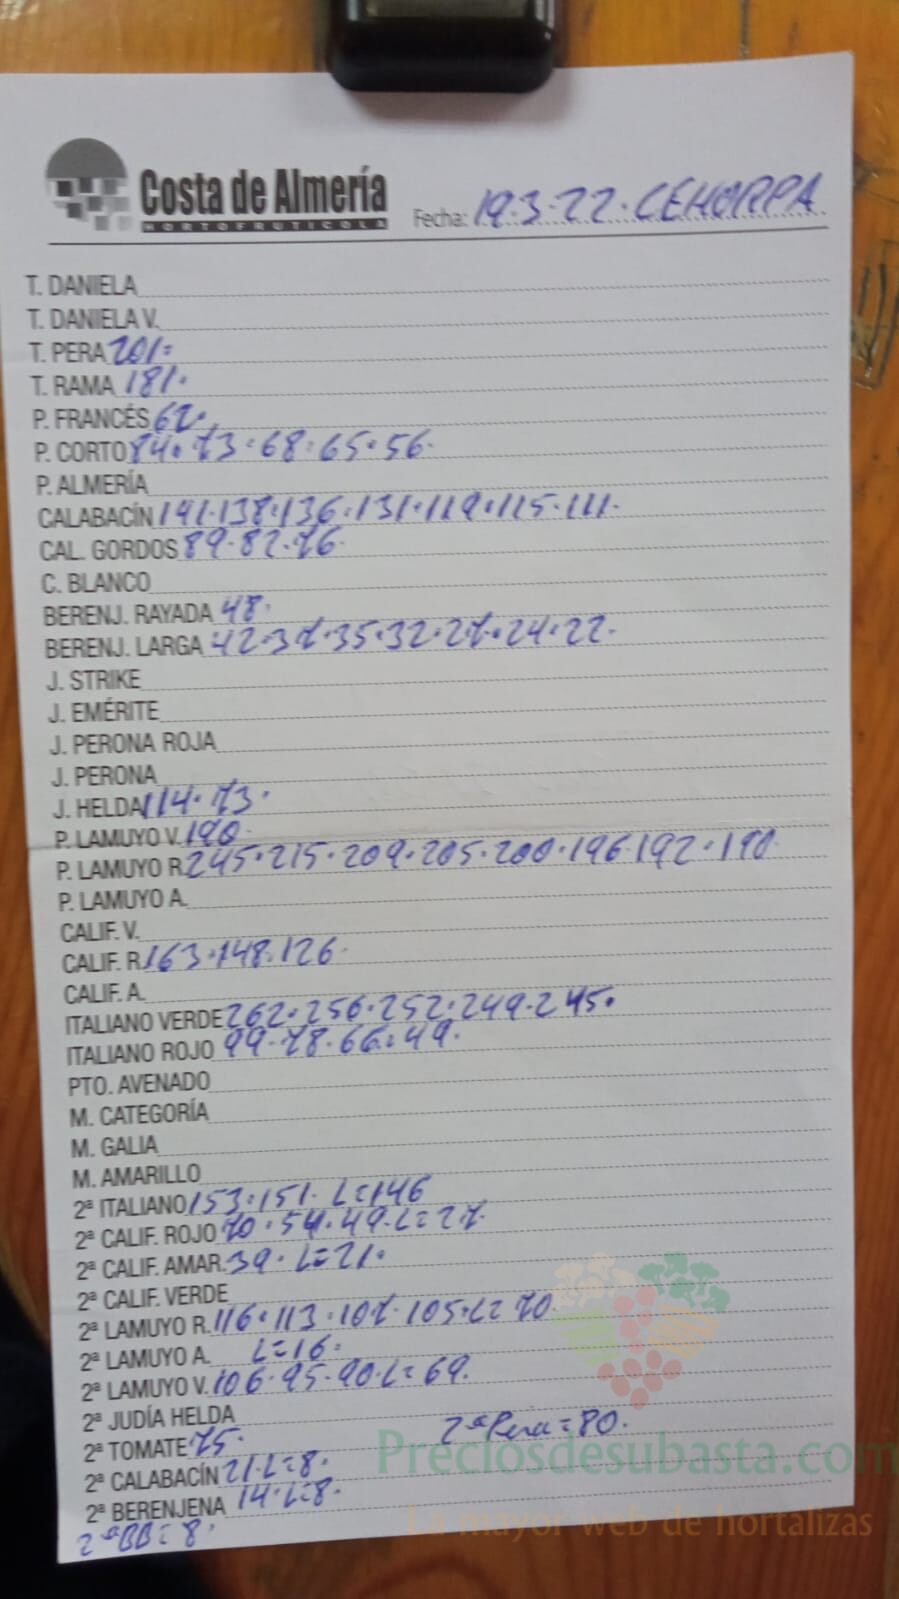 Costa de Almería
HORTOFRUTICOLA
Fecha: 19.3.22. CEHORPA
T. DANIELA
T. DANIELA V.
T. PERA 201=
T. RAMA 181.
P. FRANCÉS 67.
P. CORTO 84. 73. 68. 65. 56.
P. ALMERÍA
CALABACÍN 141. 138. 136. 131. 119. 115. 111.
CAL. GORDOS 89. 82. 76.
C. BLANCO
BERENJ. RAYADA 48.
BERENJ. LARGA 42. 37. 35. 32. 27. 24. 22.
J. STRIKE
J. EMÉRITE
J. PERONA ROJA
J. PERONA
J. HELDA 114. 73.
P. LAMUYO V. 190.
P. LAMUYO R. 245. 215. 209. 205. 200. 196. 192. 190.
P. LAMUYO A.
CALIF. V.
CALIF. R. 163. 148. 126.
CALIF. A.
ITALIANO VERDE 262. 256. 252. 249. 245.
ITALIANO ROJO 99. 78. 66. 49.
PTO. AVENADO
M. CATEGORÍA
M. GALIA
M. AMARILLO
2ª ITALIANO 153. 151. L=146
2ª CALIF. ROJO 70. 54. 49. L=27.
2ª CALIF. AMAR. 39. L=21.
2ª CALIF. VERDE
2ª LAMUYO R. 116. 113. 107. 105. L=70
2ª LAMUYO A. L=16.
2ª LAMUYO V. 106. 95. 90. L=69.
2ª JUDÍA HELDA
2ª Pera=80.
2ª TOMATE 75.
Preciosdesubasta.com
2ª CALABACÍN 21. L=8.
2ª BERENJENA 14. L=8.
La mayor web de hortalizas
2ª BB=8.